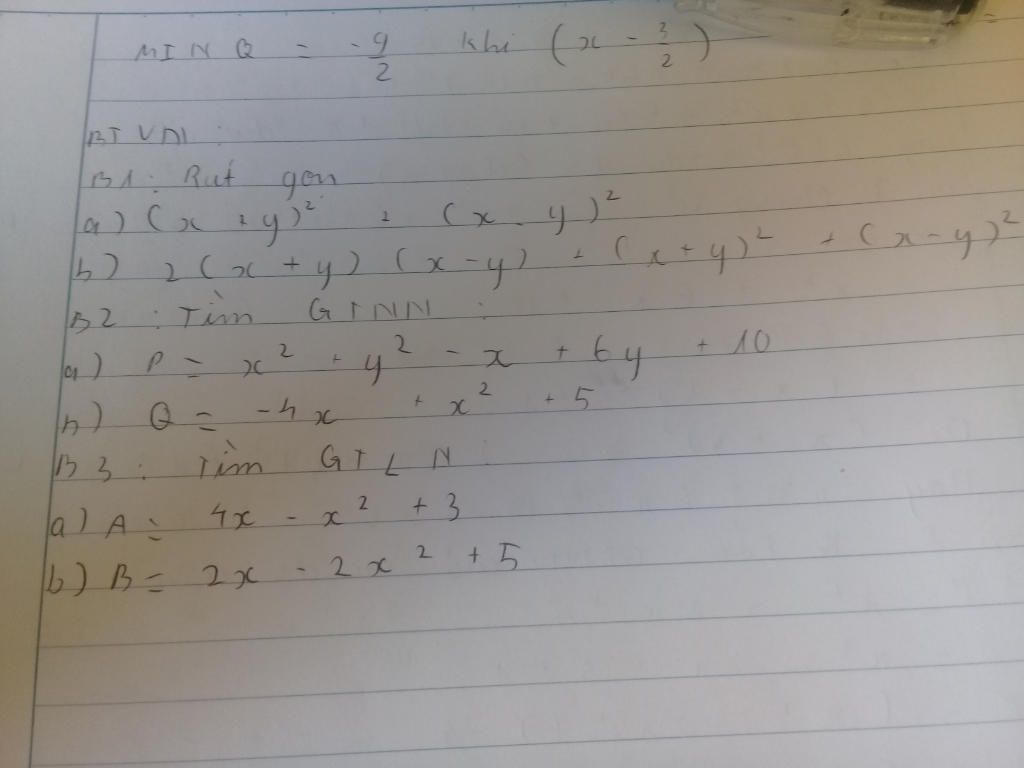 MIN Q = -9/2 khi (x - 3/2)
BTVN :
B1 : Rút gọn
a) (x + y)² + (x - y)²
b) 2(x + y) (x - y) + (x + y)² + (x - y)²
B2 : Tìm GTNN :
a) P = x² + y² - x + 6y + 10
b) Q = -4x + x² + 5
B3 : Tìm GTLN :
a) A = 4x - x² + 3
b) B = 2x - 2x² + 5